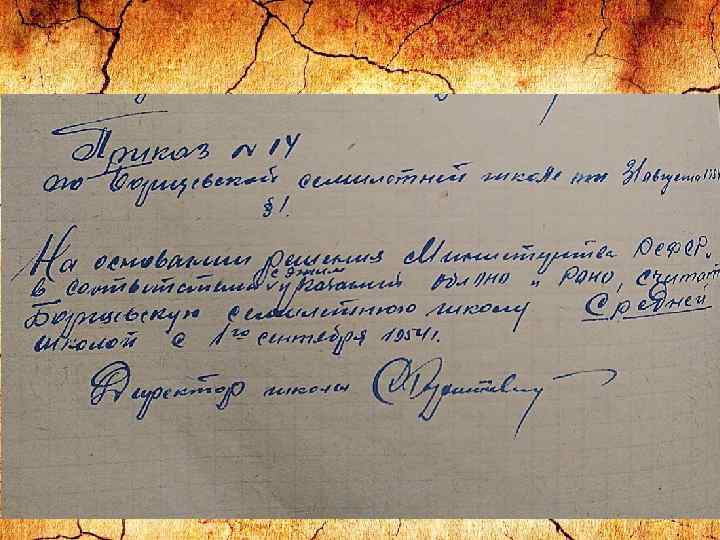 Приказ N 14
по Борщевской семилетней школе от 31 августа 195
§ 1.
На основании решения Министерства РСФСР,
в соответствии с этим указаний облоно и роно, считать
Борщевскую семилетнюю школу Средней
школой с 1го сентября 1954 г.
Директор школы